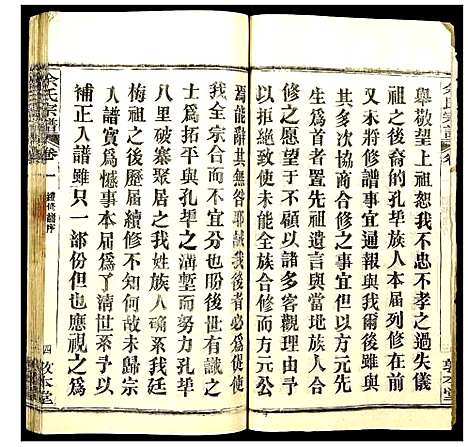 舉敬望上祖恕我不忠不孝之過失儀
祖之後裔的孔垏族人本屆列修在前
又未將修譜事宜與我爾後雖與
其多次協商合修之事宜但以方元先
生爲首者置先祖遺言與當地族人合
修之愿望於不顧以諸多客觀理由予
以拒絕致使未能全族合修方元公
焉能辭其無咎耶誠我後者必爲倚
我全宗合而不宜分也後世有識之
士爲拓平與孔垏之溝塹而努力孔垏
八里破寨聚居之我姓族人璹珎廷
梅祖之後歷屆續修不知何故未歸宗
入譜實爲憾事本屆爲了清世系予以
補正入譜雖只一部份但也應視之爲
余氏宗譜
卷一
譜序
四
敦本堂